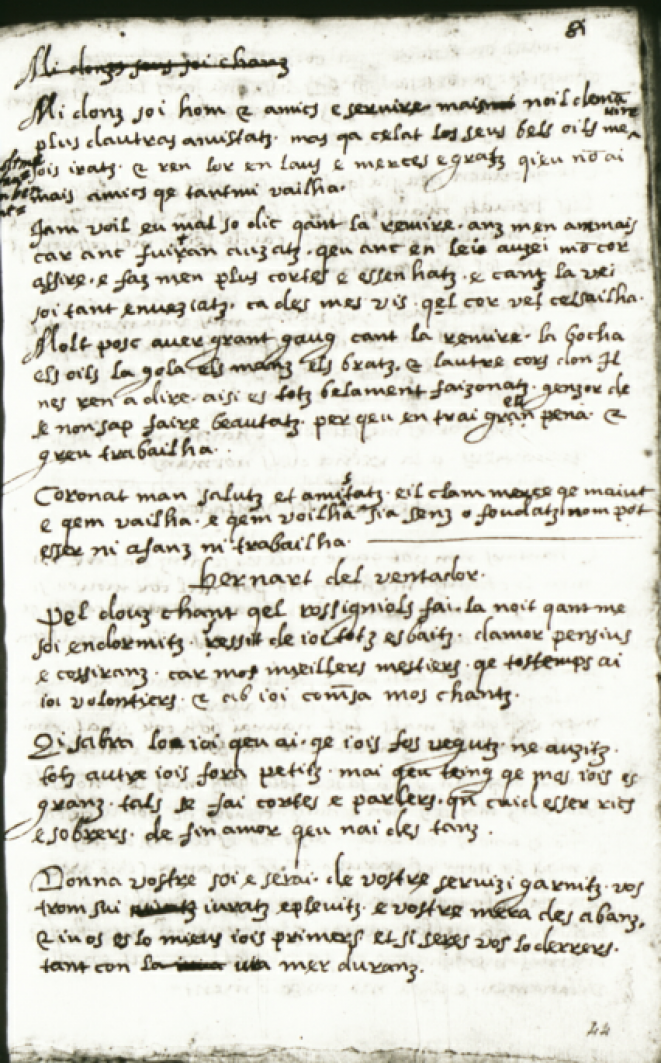 81
Mi donz sous soi chanz
Mi donz soi hom & amics e servire mais noil deman
plus dautras amistatz. mas qa celat los seus bels oils me
vire
sois iratz. & ren lor en laus e merces e gratz qieu nō ai
mais amics qe tantmi vailha.
Jam voil eu mal so dic qant la remire. anz men am mais
car anc fui tan cuizatz. qeu anc en leis auzei mō cor
assire. e faz men plus cortes e essenhatz. e canz la vei
soi tant enveziatz. ca des mes vis. qel cor vես celsailha.
Molt posc auer grant gaug cant la remire. la bocha
els oils la gola els manz els bratz. & lautre cors don Jl
nes ren a dire. aisi es totz belament faizonatz. genzor de
ella
se non sap faire beautatz. per qeu en trai gran pena. &
greu trabailha.
Coronat man salutz et amistatz. eil clam merce qe maiut
e qem vailha. e qem voilha sia senz o foudatz nom pot
esser ni afanz ni trabailha.
Bernart del ventador.
Pel doutz chanz qel rossigniols fai. la noit qant me
soi endormitz. ressit de ioi totz esbaitz. damor pensius
e cossiranz. car mos meillers mestiers. qe tostemps ai
ioi volontiers. & ab ioi comēsa mos chantz.
Qi sabra lo ioi qeu ai. qe iois fos vegutz. ne auzitz.
totz autre iois fora petitz. mai qeu teing qe mos iois es
granz. tals se fai cortes e parlers. qn cuid esser rics
e sobrers. de fin amor qeu nai des tanz.
Donna vostre soi e serai. de vostre servizi garnitz. vos
trom sui iuratz e plevitz. e vostre mera des abanz.
& vos es lo mieus iois primers et si seres vos loderrers.
tant con la uita mer duranz.
44